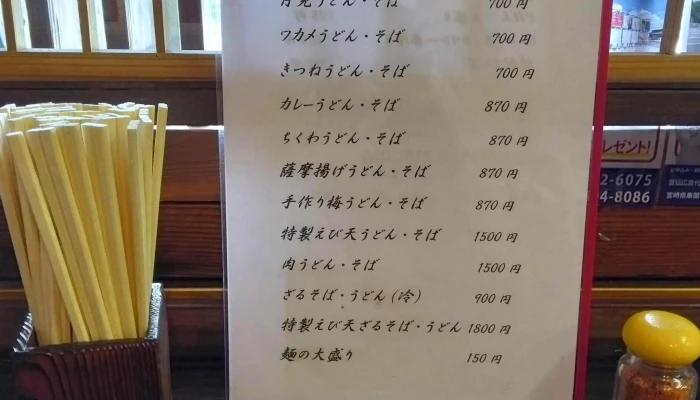 月見うどん・そば 700 円
ワカメうどん・そば 700 円
きつねうどん・そば 700 円
カレーうどん・そば 870 円
ちくわうどん・そば 870 円
薩摩揚げうどん・そば 870 円
手作り梅うどん・そば 870 円
特製えび天うどん・そば 1500 円
肉うどん・そば 1500 円
ざるそば・うどん(冷) 900 円
特製えび天ざるそば・うどん 1800 円
麺の大盛り 150 円
レゼント!
2-6075
4-8086